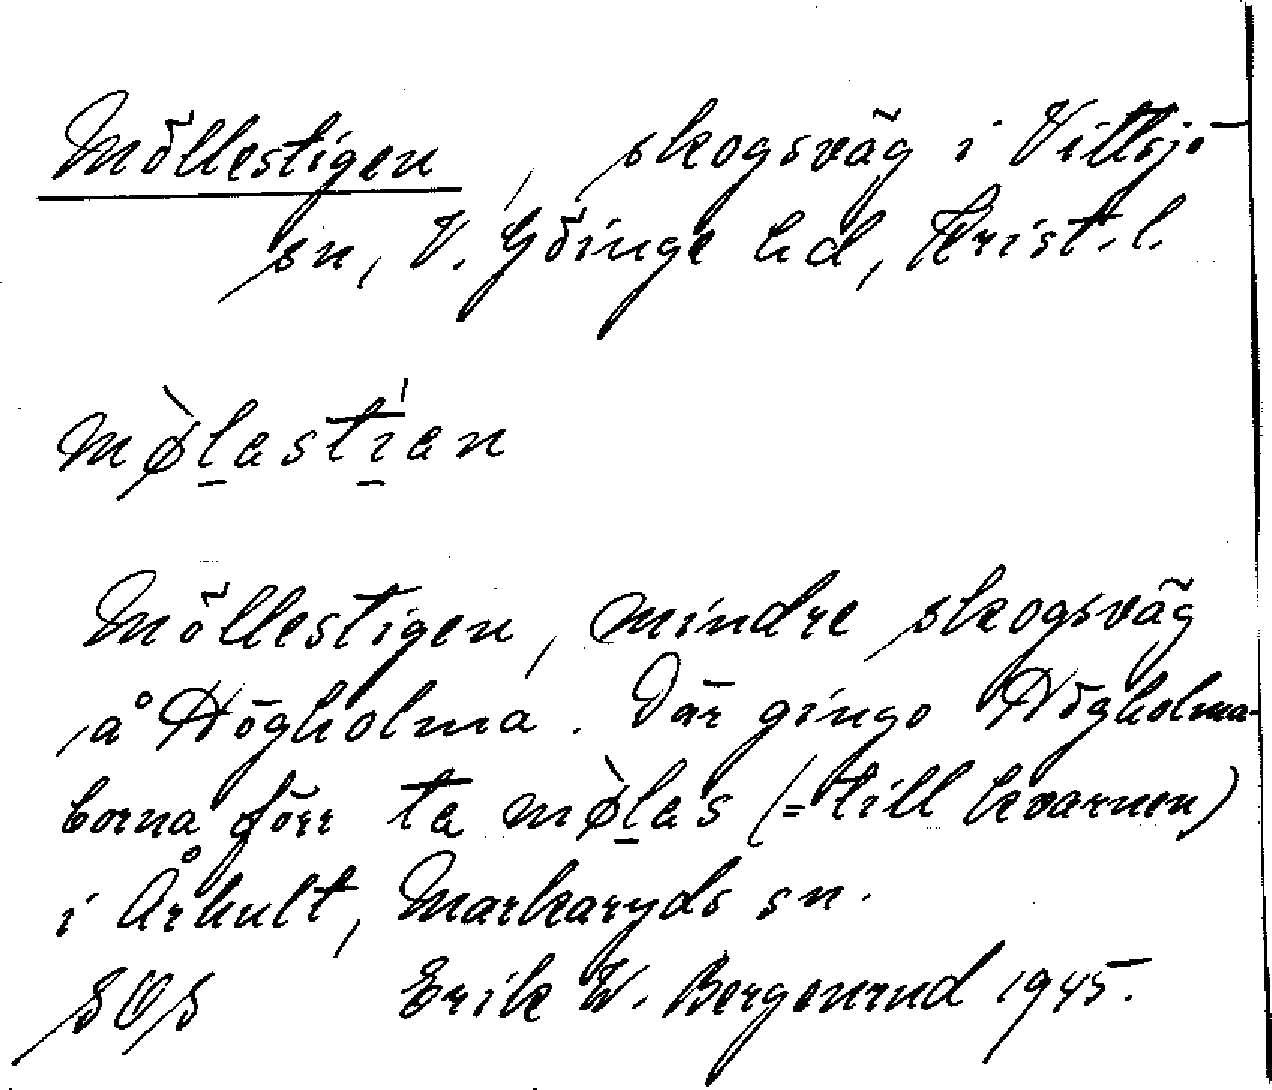 Möllestigen, skogsväg i Vittsjö
sn, V. Göinge hd, Krist. l.
mø̀lastìan
Möllestigen, mindre skogsväg
å Högholma. Där gingo Högholma-
borna förr ta mø̀las (= till kvarnen)
i Århult, Markaryds sn.
SOS Erik W. Bergenrud 1945.